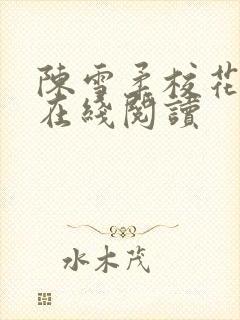 陳雪柔校花
在綫閱讀
水木茂